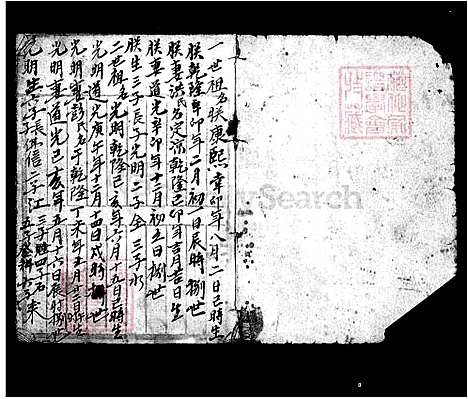 一世祖名朕康熙辛卯年八月二日己時生
朕乾隆辛卯年二月初一日辰時捌世
朕妻洪氏名定涼乾隆己卯年吉月吉日生
朕妻道光辛卯年十二月初五日捌世
朕生三子長子光明二子金三子水
二世祖名光明乾隆己亥年六月十五日己時生
光明道光庚午年十二月十四日戌時捌世
光明妻彭氏名于乾隆丁未年五月十三時生
光明妻道光己亥年五月十六日辰時捌世
光明生六子長傳信二子江三子四子石五子六子來
Search